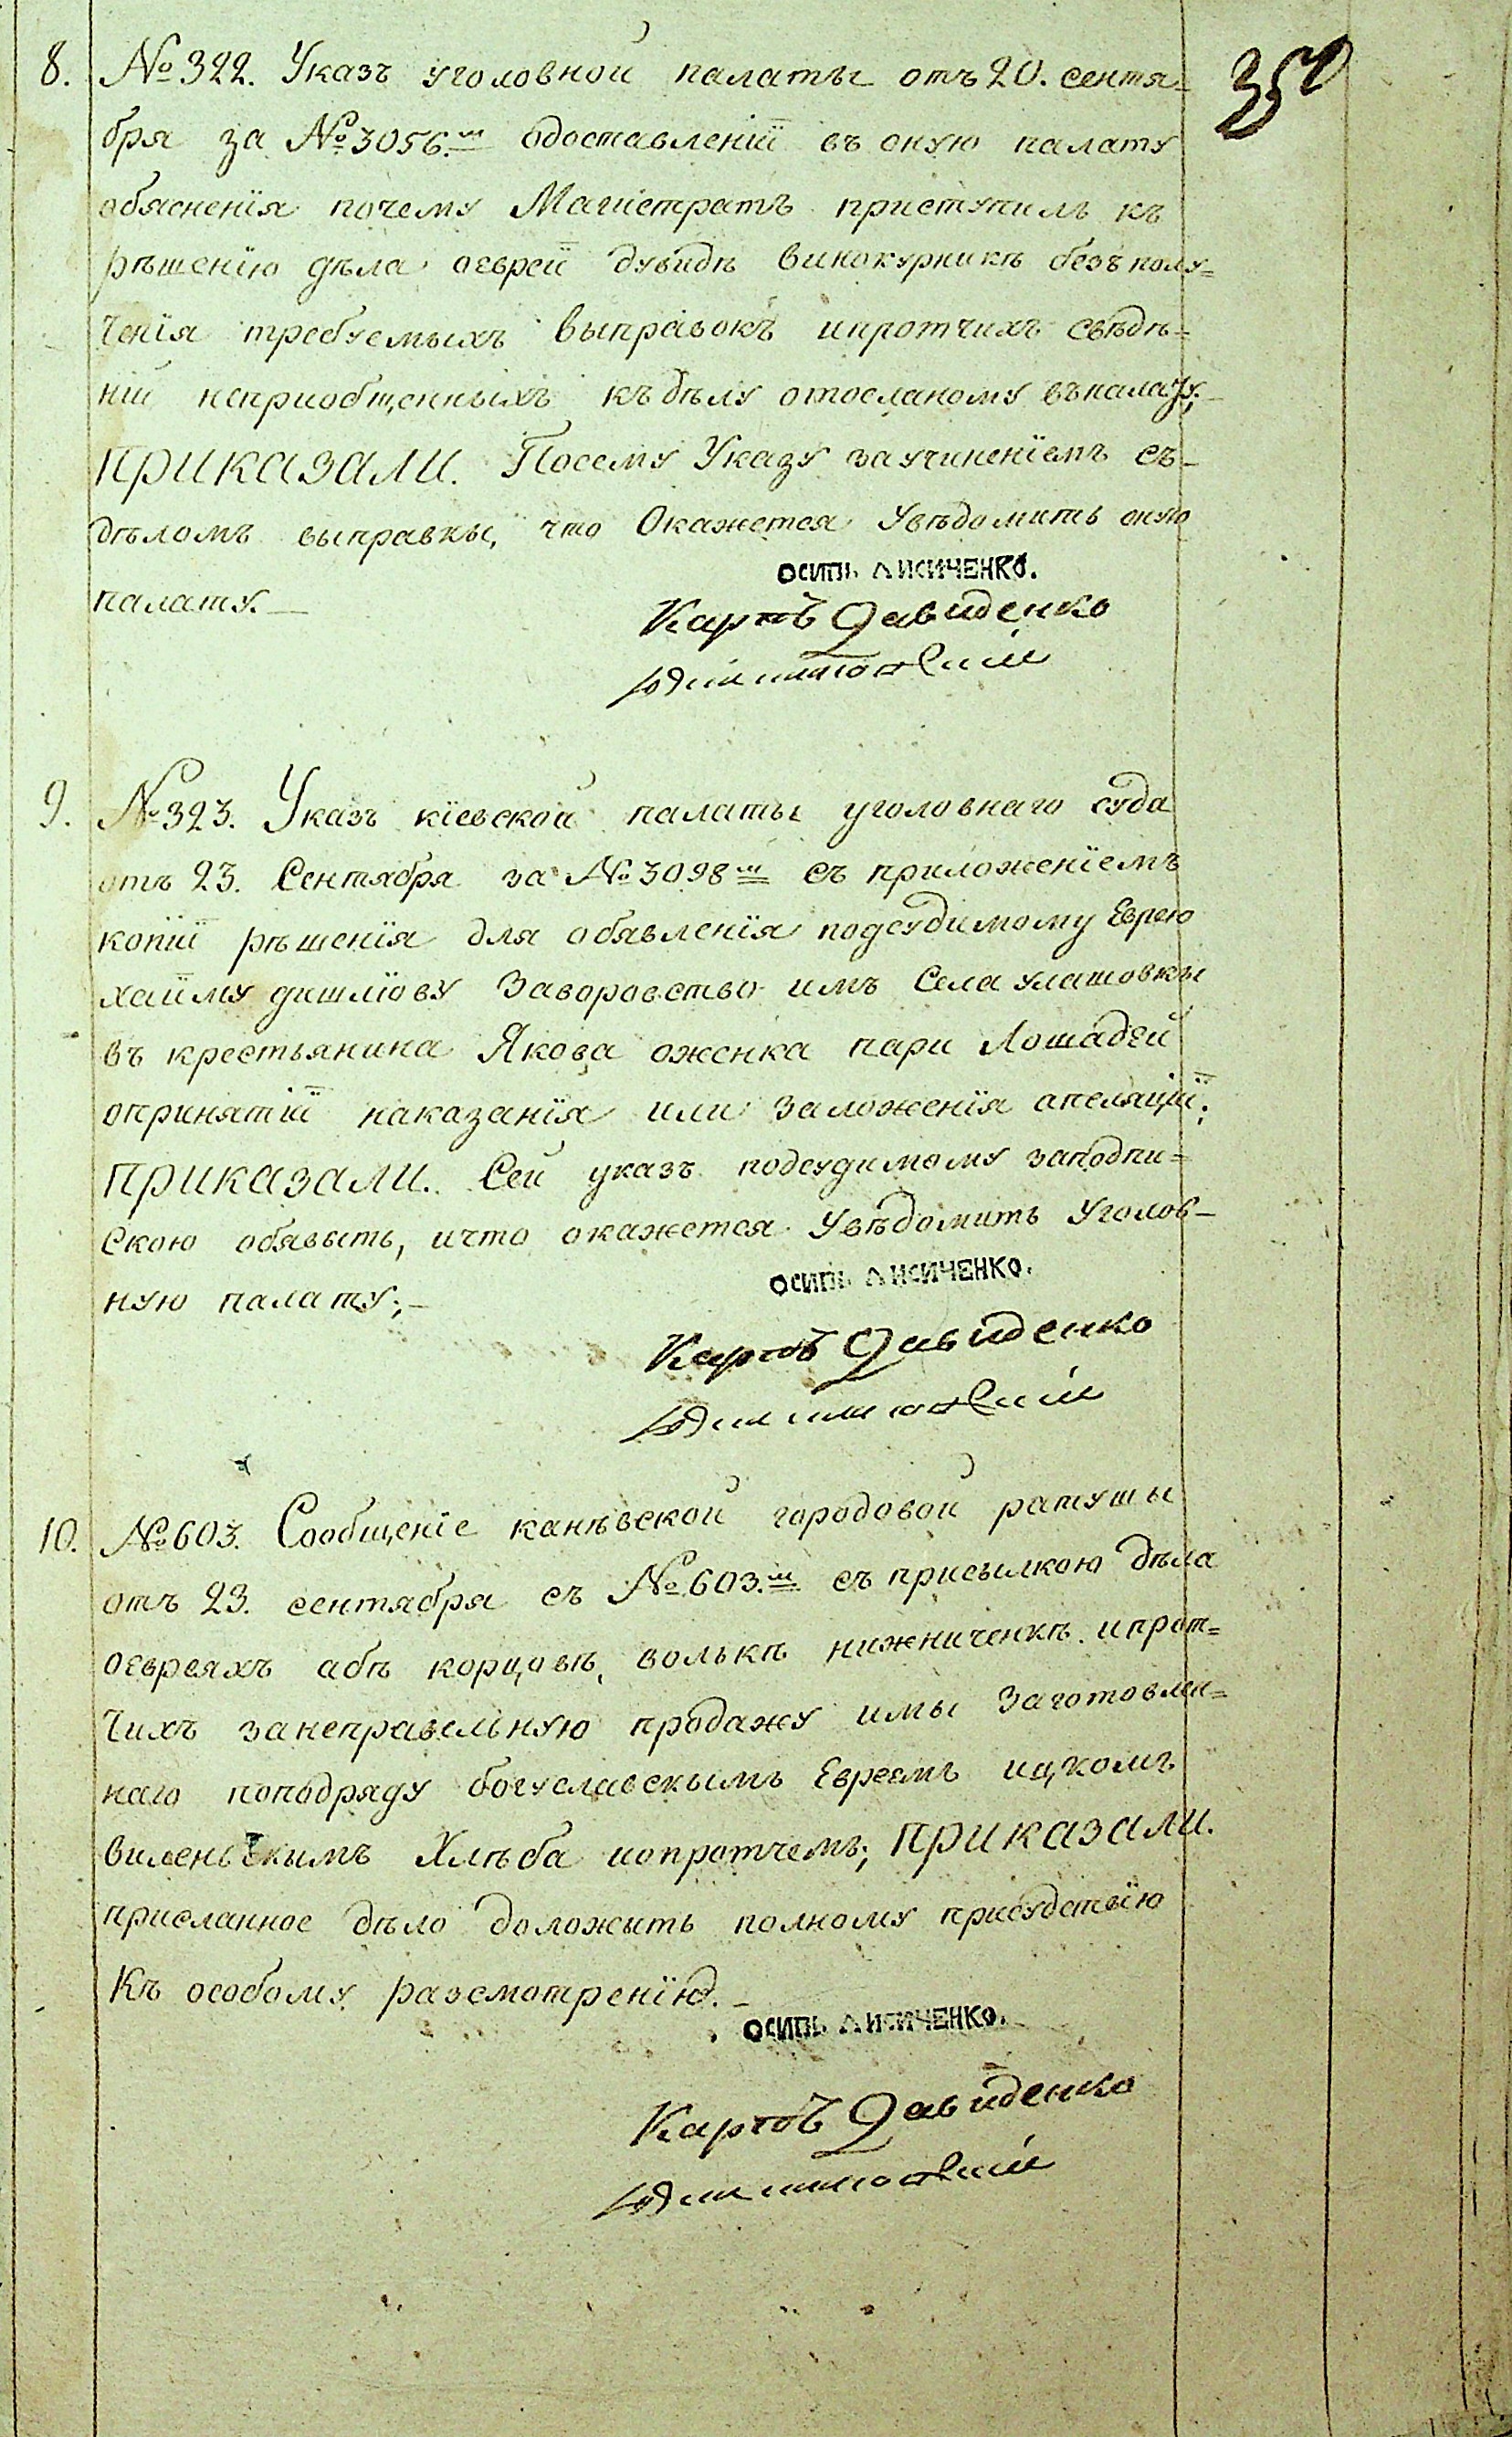 354
8. №322. Указъ уголовной палаты отъ 20. сентя=
бря за №3056.м одоставленіи въ оную палату
обясненія почему Магістратъ приступилъ къ
рѣшенію дѣла оевреи дувидѣ винокурникѣ безъ полу=
ченія требуемыхъ выправокъ ипротчихъ свѣдѣ=
ній неприобщенныхъ къ дѣлу отосланому въ палату;
приказали. Посему Указу заучиненіемъ съ
дѣломъ выправки, что Окажется Увѣдомить оную
палату.—
осипъ лисиченко.
Карпъ Давиденко
9. №323. Указъ кіевской палаты уголовнаго суда
отъ 23. Сентября за №3098м съ приложеніемъ
копіи рѣшенія для обявленія подсудимому Еврею
хаиму дишліову заворовство имъ Села улашовки
въ крестьянина Якова оженка пари Лошадей
опринятіи наказанія или заложенія апеляціи;
приказали. Сей указъ подсудимому заподпи=
скою обявыть, ичто окажется Увѣдомить Уголов-
ную палату;—
осипъ лисиченко.
Карпъ Давиденко
10. №603. Сообщеніе канѣвской городовой ратушы
отъ 23. сентября съ №603.м съ присылкою дѣла
оевреяхъ абѣ корцовѣ, волькѣ нижниченкѣ ипрот=
чихъ занеправельную продажу имы Заготовлен=
наго поподряду богуславскымъ Евреемъ ицкомъ
виленьскимъ Хлѣба иопротчемъ; приказали.
присланное дѣло доложыть полному присудствію
Къ особому разсмотренію.—
осипъ лисиченко.
Карпъ Давиденко